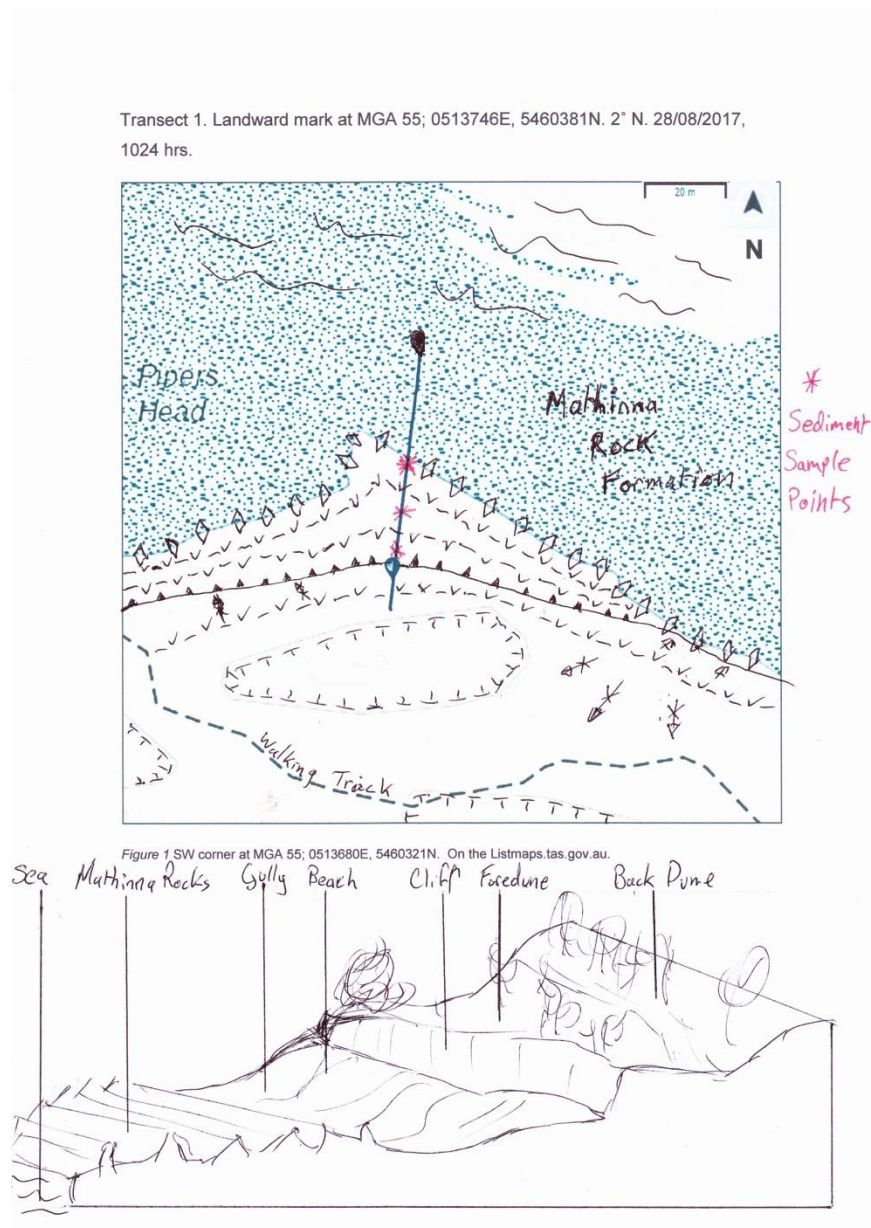 Transect 1. Landward mark at MGA 55; 0513746E, 5460381N. 2° N. 28/08/2017,
1024 hrs.
20 m
N
Pipers
Head
Mathinna
Rock
Formation
Sediment
Sample
Points
Walking Track
Figure 1 SW corner at MGA 55; 0513680E, 5460321N. On the Listmaps.tas.gov.au.
Sea Mathinna Rocks Gully Beach Cliff Foredune Back Dune